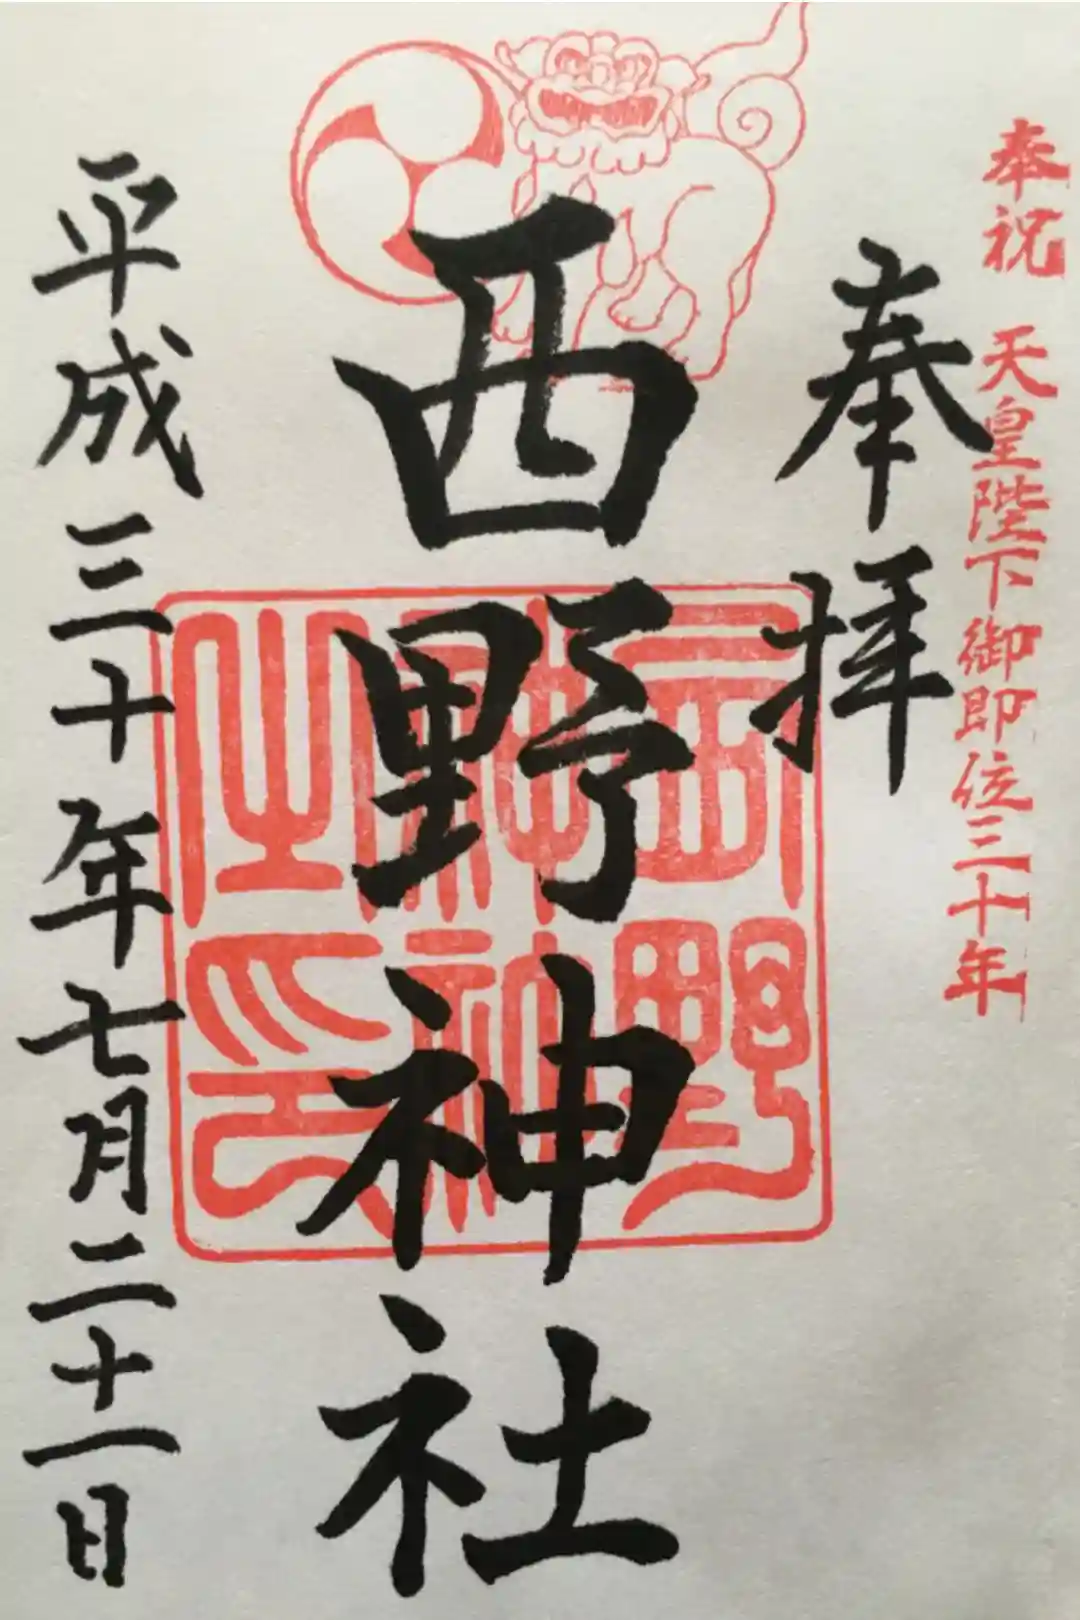 奉祝 天皇陛下御即位三十年
奉拝
西野神社
西野神社之印
平成三十年七月二十一日